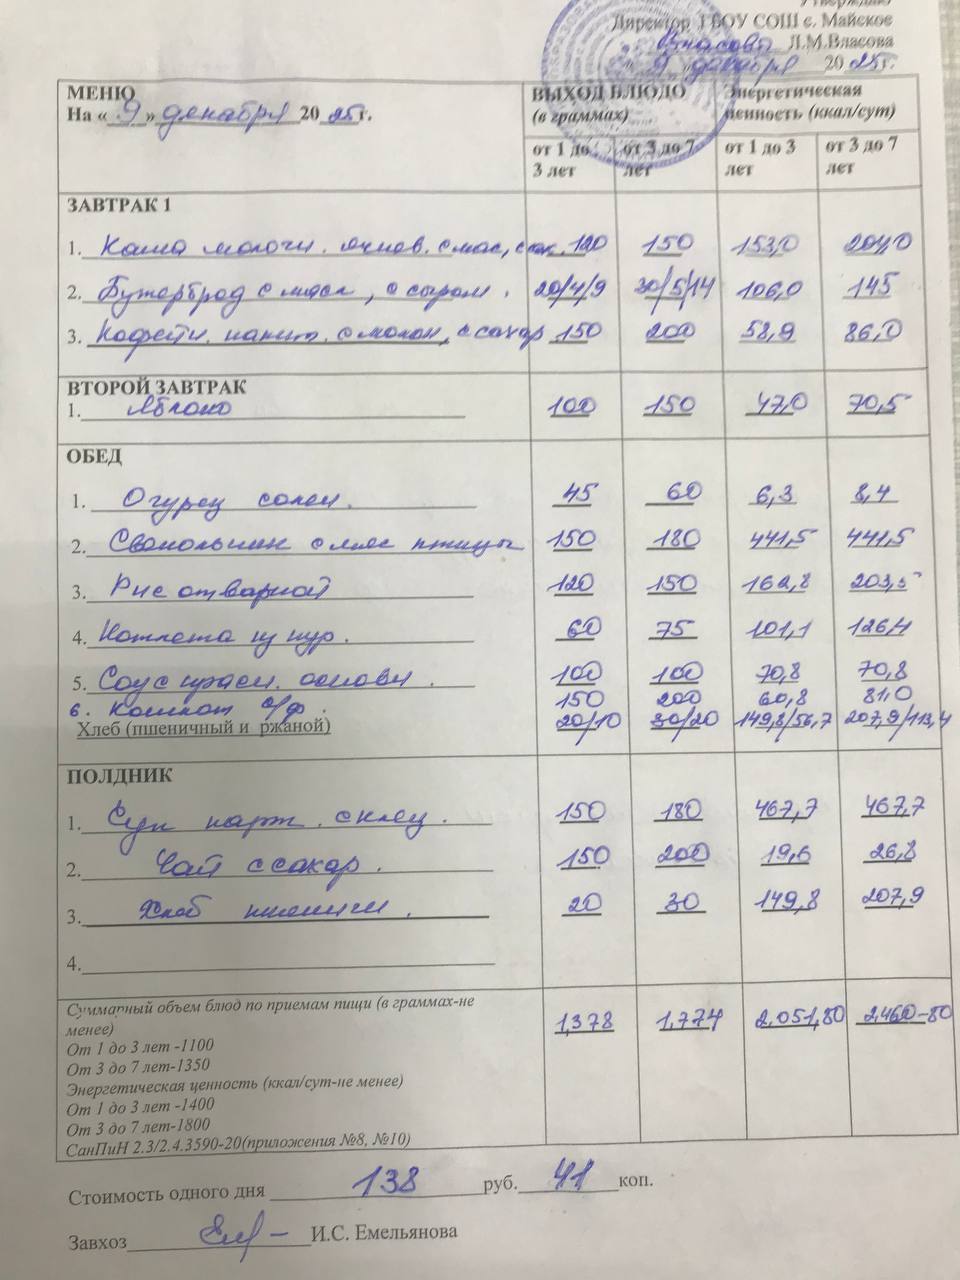 Утверждаю
Директор ГБОУ СОШ с. Майское
Власова Л.М.Власова
«9» декабря 2025г.
МЕНЮ
На «9» декабря 2025г.
ВЫХОД БЛЮДО (в граммах)
Энергетическая ценность (ккал/сут)
от 1 до 3 лет
от 3 до 7 лет
от 1 до 3 лет
от 3 до 7 лет
ЗАВТРАК 1
1. Каша молочн. ячнев. с мас, с сах. 120 150 153,0 204,0
2. Бутерброд с масл, с сыром. 20/4/9 30/5/14 106,0 145
3. Кофейн. напит. с молок, с сахар 150 200 58,9 86,0
ВТОРОЙ ЗАВТРАК
1. Яблоко 100 150 47,0 70,5
ОБЕД
1. Огурец солен. 45 60 6,3 8,4
2. Свекольник с мяс птицы 150 180 441,5 441,5
3. Рис отварной 120 150 162,8 203,5
4. Котлета из кур. 60 75 101,1 126,4
5. Соус красн. основн. 100 100 70,8 70,8
6. Компот с/ф. 150 200 60,8 81,0
Хлеб (пшеничный и ржаной) 20/10 30/20 149,8/56,7 207,9/113,4
ПОЛДНИК
1. Суп карт. с клец. 150 180 467,7 467,7
2. Чай с сахар. 150 200 19,6 26,8
3. Хлеб пшеничн. 20 30 149,8 207,9
4.
Суммарный объем блюд по приемам пищи (в граммах-не
менее) 1,378 1,774 2.051,80 2,460-80
От 1 до 3 лет -1100
От 3 до 7 лет-1350
Энергетическая ценность (ккал/сут-не менее)
От 1 до 3 лет -1400
От 3 до 7 лет-1800
СанПиН 2.3/2.4.3590-20(приложения №8, №10)
Стоимость одного дня 138 руб. 41 коп.
Завхоз И.С. Емельянова